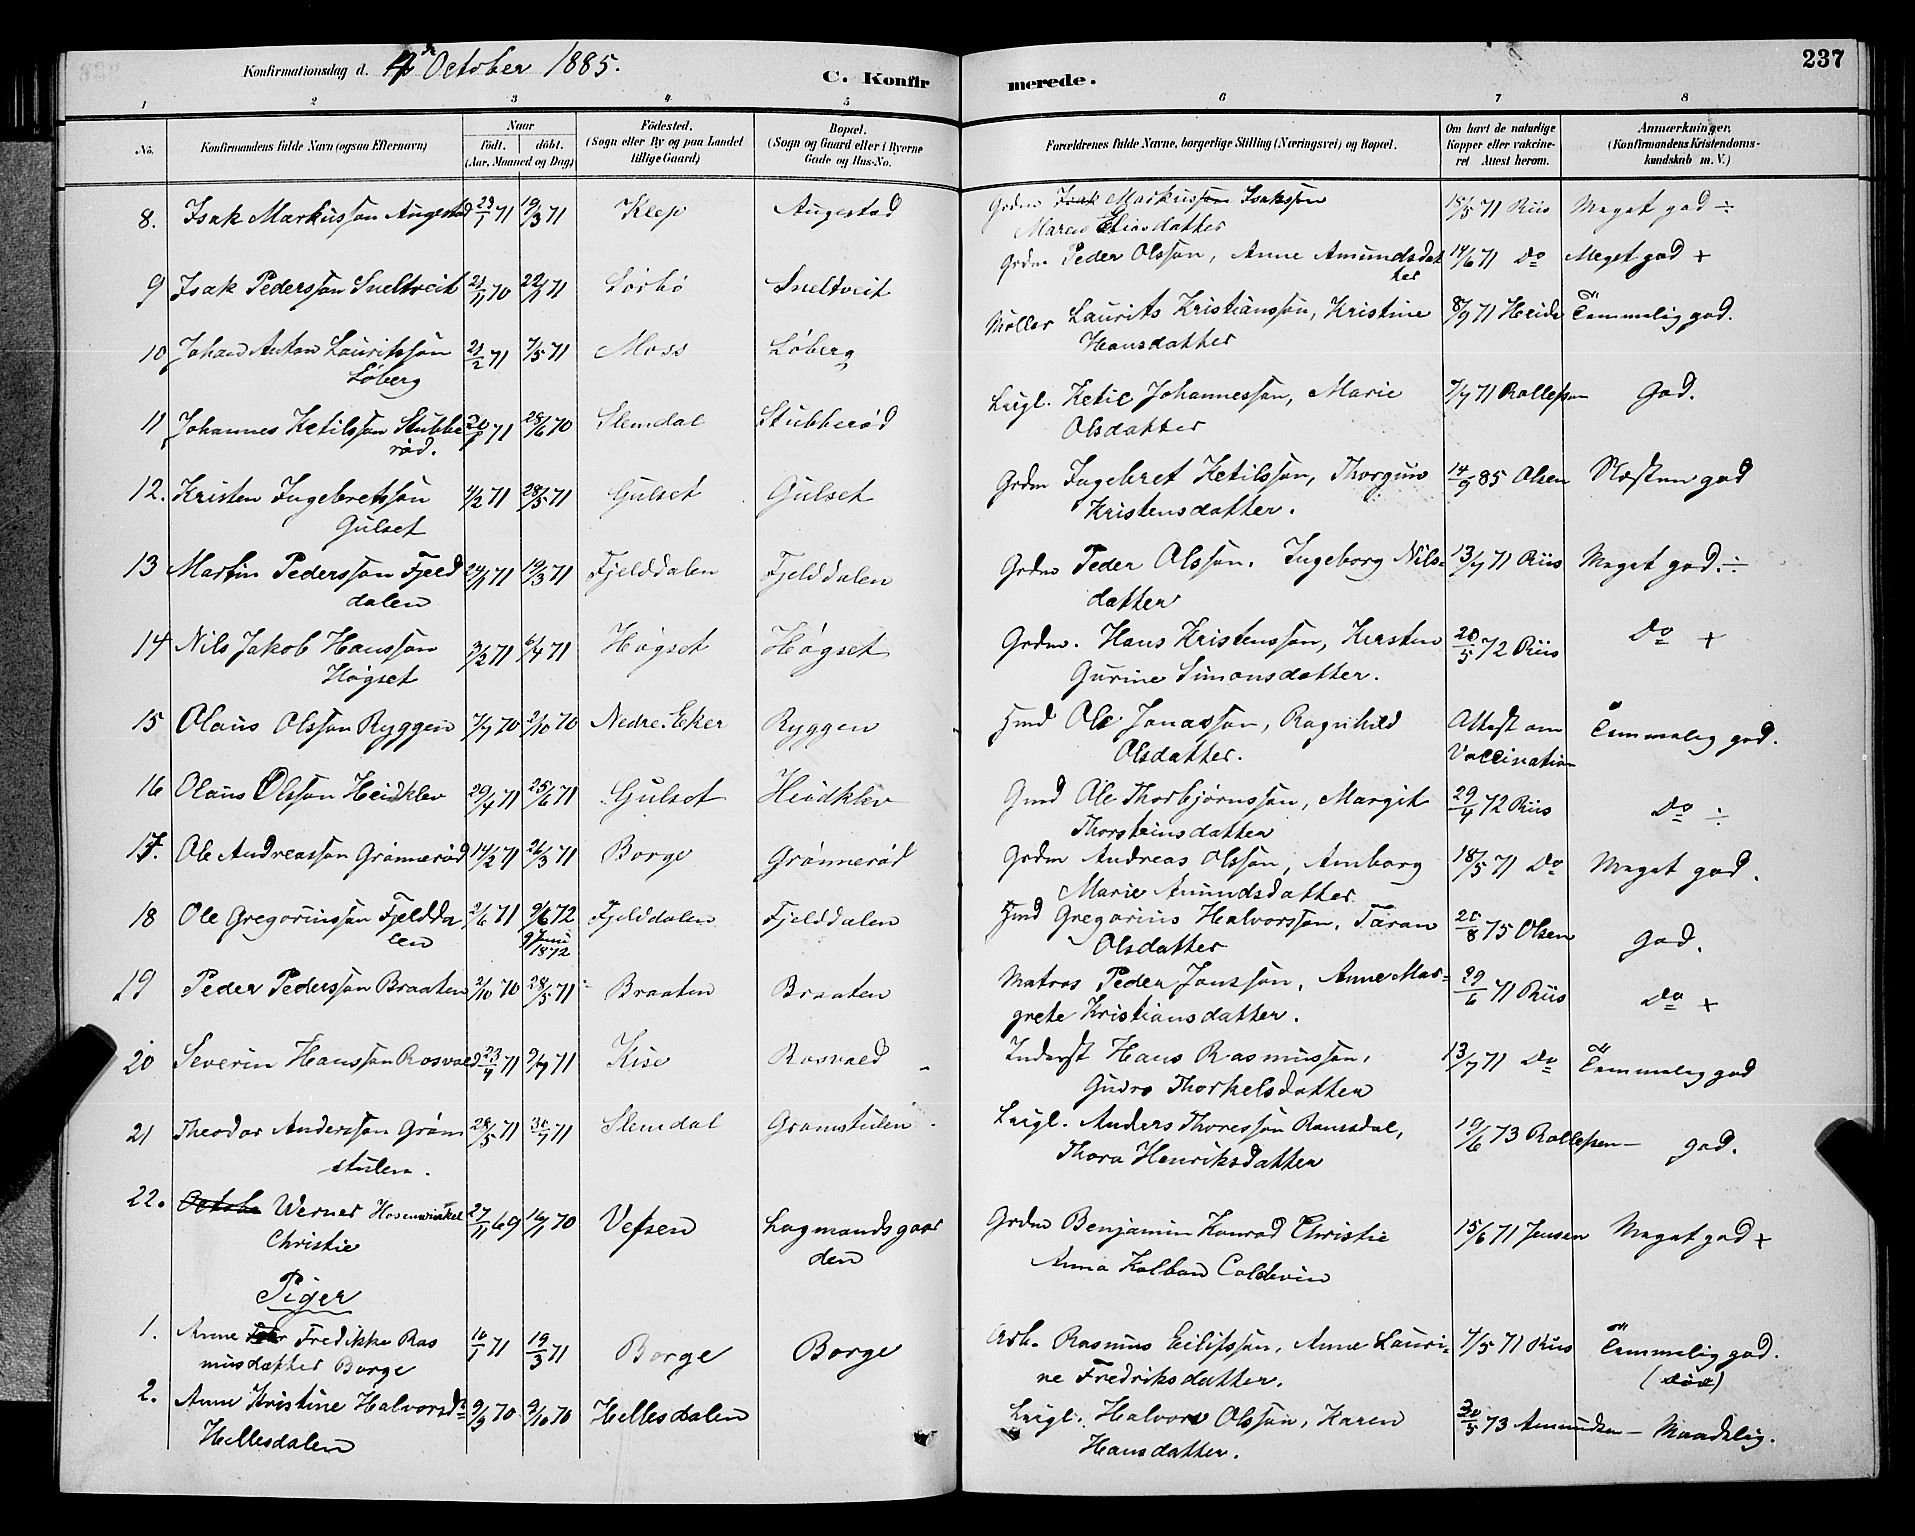 237
Konfirmationsdag d. 4de October 1885. C. Konfirmerede.
1 2 3 4 5 6 7 8
No. Konfirmandens fulde Navn (ogsaa Efternavn) Naar födt. döbt. (Aar, Maaned og Dag) Födested. (Sogn eller By og paa Landet tillige Gaard) Bopæl. (Sogn og Gaard eller i Byerne Gade og Hus-No. Forældrenes fulde Navne, borgerlige Stilling (Næringsvei) og Bopæl. Om havt de naturlige Kopper eller vakcineret Attest herom. Anmærkninger. (Konfirmandens Kristendomskundskab m. V.)
8. Isak Markusson Augestad 23/1 71 19/3 71 Klep Augestad Grdm Isak Markusson Isaksson
Maren Eliasdatter 18/5 71 Riis Meget god ÷
9 Isak Pedersson Sneltveit 21/11 70 22/1 71 Lørbø Sneltveit Grdm Peder Olsson, Anne Amundsdatter 14/6 71 Do Meget god +
10 Johan Anton Lauritsson
Løberg 21/2 71 7/5 71 Moss Løberg Møller Laurits Kristiansson, Kristine
Hansdatter 8/9 71 Heide Temmelig god.
11 Johannes Ketilsson Stubberød. 71 28/6 70 Slemdal Stubberød Leigl. Ketil Johannesson, Marie
Olsdatter 7/7 71 Rollefsen God.
12. Kristen Ingebretsson
Gulset 4/2 71 28/5 71 Gulset Gulset Grdm Ingebret Ketilsson, Thorgun
Kristensdatter. 14/9 85 Olsen Næsten god
13 Martin Pedersson Fjelddalen 24/1 71 19/3 71 Fjelddalen Fjelddalen Grdm Peder Olsson, Ingeborg Nilsdatter 13/7 71 Riis Meget god. ÷
14 Nils Jakob Hansson
Høgset 3/2 71 6/4 71 Høgset Høgset Grdm. Hans Kristensson, Kirsten
Gurine Simonsdatter. 20/5 72 Riis Do +
15 Olaus Olsson Ryggen 7/7 70 2/10 70 Nedre Eker Ryggen Hmd Ole Jonasson, Ragnhild
Olsdatter. Attest om
Vaccination Temmelig god.
16 Olaus Olsson Heidklev 29/4 71 25/6 71 Gulset Heidklev Gmd Ole Thorbjørnsson, Margit
Thorsteinsdatter 29/4 72 Riis Do ÷
17. Ole Andreasson Grønnerød 14/2 71 26/3 71 Borge Grønnerød Grdm Andreas Olsson, Amborg
Marie Amundsdatter 18/5 71 Do Meget god.
18 Ole Gregoriusson Fjelddalen 2/6 71 9/6 72
9 Juni
1872 Fjelddalen Fjelddalen Hmd Gregorius Halvorsson, Taran
Olsdatter 20/8 75 Olsen God.
19 Peder Pedersson Braaten 2/10 70 28/5 71 Braaten Braaten Matros Peder Jansson, Anne Margrete Kristiansdatter. 29/6 71 Riis Do +
20 Severin Hansson Rosvald 23/4 71 9/7 71 Kise Rosvald Inderst Hans Rasmusson,
Gudro Thorkelsdatter 13/7 71 Do Temmelig god
21 Theodor Andersson Gromstulen. 28/5 71 30/7 71 Slemdal Gromstulen Leigl. Anders Thoresson Ramsdal,
Thora Henriksdatter 19/6 73 Rollefsen god.
22. Werner Hosenwinkel
Christie 27/11 69 16/1 70 Vefsen Lagmandsgaarden Grdm Benjamin Konrad Christie
Anna Kolban Coldevin 15/6 71 Jensen Meget god +
Piger
1. Anne Fredikke Rasmusdatter Borge 10/1 71 19/3 71 Borge Borge Arb. Rasmus Eilifsson, Anne Laurine Fredriksdatter. 4/5 71 Riis Temmelig god.
2. Anne Kristine Halvorsdr
Hellesdalen 9/9 70 9/10 70 Hellesdalen Leigl. Halvor Olsson, Karen
Hansdatter. 30/5 73 Amundsen Maadelig.